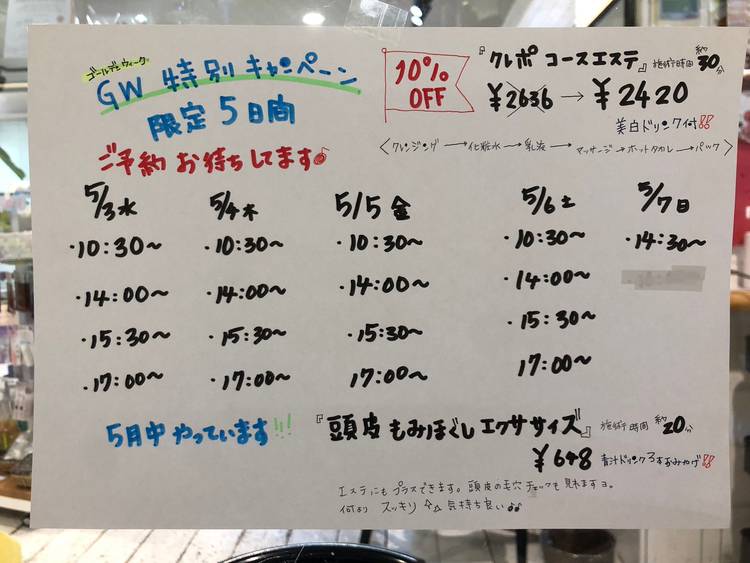 ゴールデンウィーク
GW 特別キャンペーン
限定5日間
ご予約お待ちしてます
10% OFF
『クレポ コースエステ』 施術時間 約30分
¥2636 → ¥2420
美白ドリンク付!!
〈クレンジング→化粧水→乳液→マッサージ→ホットタオル→パック〉
5/3水 5/4木 5/5金 5/6土 5/7日
・10:30〜 ・10:30〜 ・10:30〜 ・10:30〜 ・14:30〜
・14:00〜 ・14:00〜 ・14:00〜 ・14:00〜
・15:30〜 ・15:30〜 ・15:30〜 ・15:30〜
・17:00〜 ・17:00〜 ・17:00〜 17:00〜
5月中やっています!!!
『頭皮もみほぐしエクササイズ』 施術時間 約20分
¥648 青汁ドリンク3本おみやげ!!
エステにもプラスできます。頭皮の毛穴チェックも見れますヨ。
何よりスッキリ 気持ち良い♪